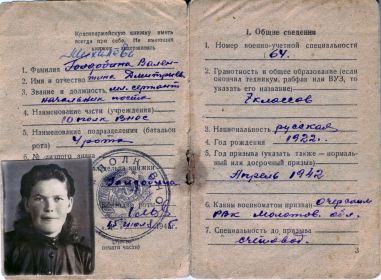 Красноармейскую книжку иметь
всегда при себе. Не имеющих
книжек — задерживать.
1. Фамилия Голдобина Вален-
2. Имя и отчество тина Дмитриевна
3. Звание и должность, мл. сержант
начальник поста
4. Наименование части (учреждения)
10 полк Внос
5. Наименование подразделения (батальон
рота) 4 рота
6. № личного
книжки
Голдобина
роты
194
печати части)
I. Общие сведения
1. Номер военно-учетной специальности
64.
2. Грамотность и общее образование (если
окончил техникум, рабфак или ВУЗ, то
указать его название)
7 классов
3. Национальность русская
4. Год рождения 1922.
5. Год призыва (указать также — нормаль-
ный или досрочный призыв)
Апрель 1942
6. Каким военкоматом призван Очерским
РВК Молотов. обл.
7. Специальность до призыва
счетовод.
3